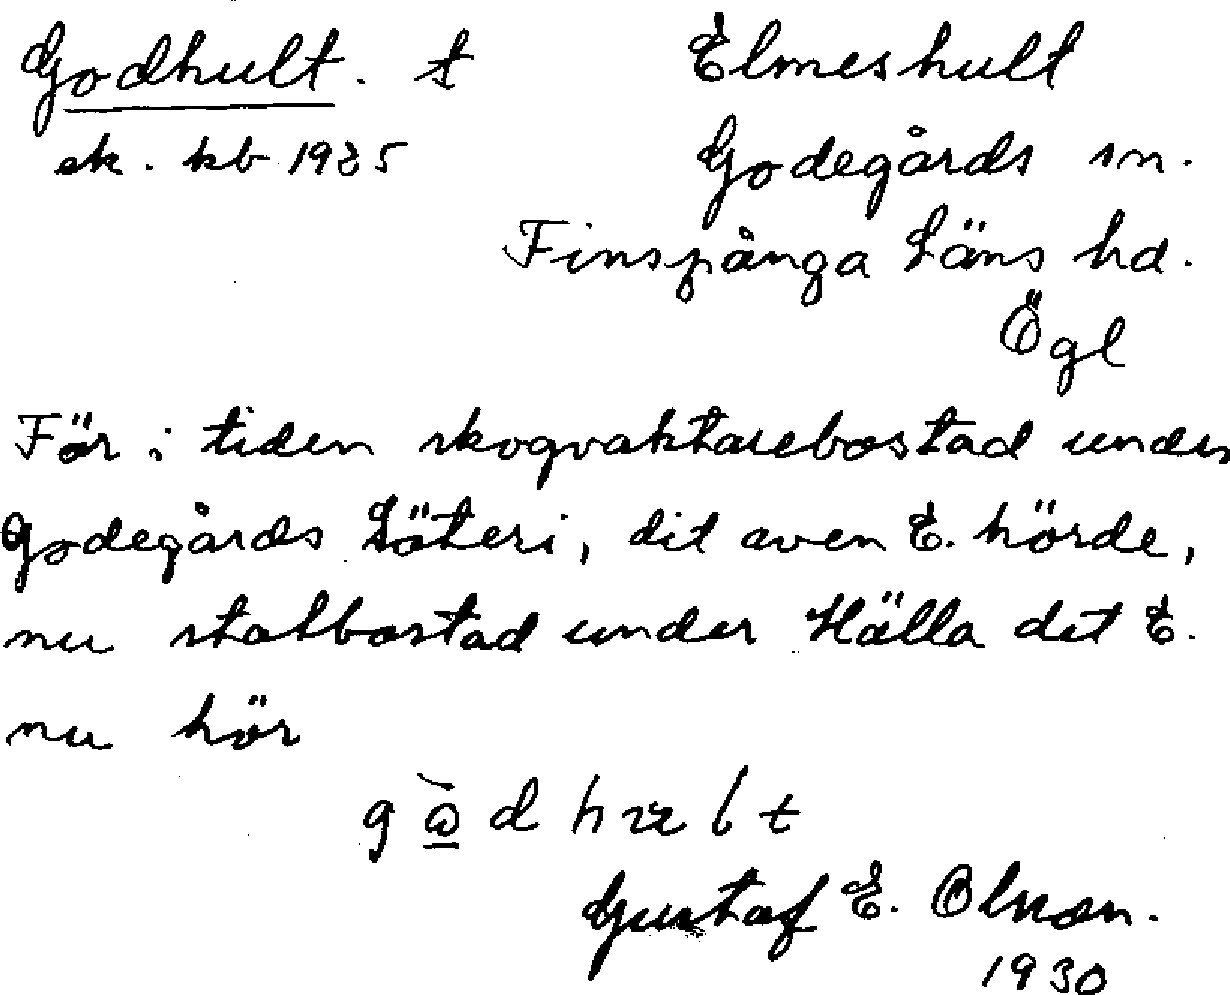 Godhult. t Elmeshult
ek. kb 1925 Godegårds sn.
Finspånga Läns hd.
Ögl
För i tiden skogvaktarebostad under
Godegårds Säteri, dit även E. hörde,
nu statbostad under Hälla dit E.
nu hör
Gustaf E. Olsson.
1930